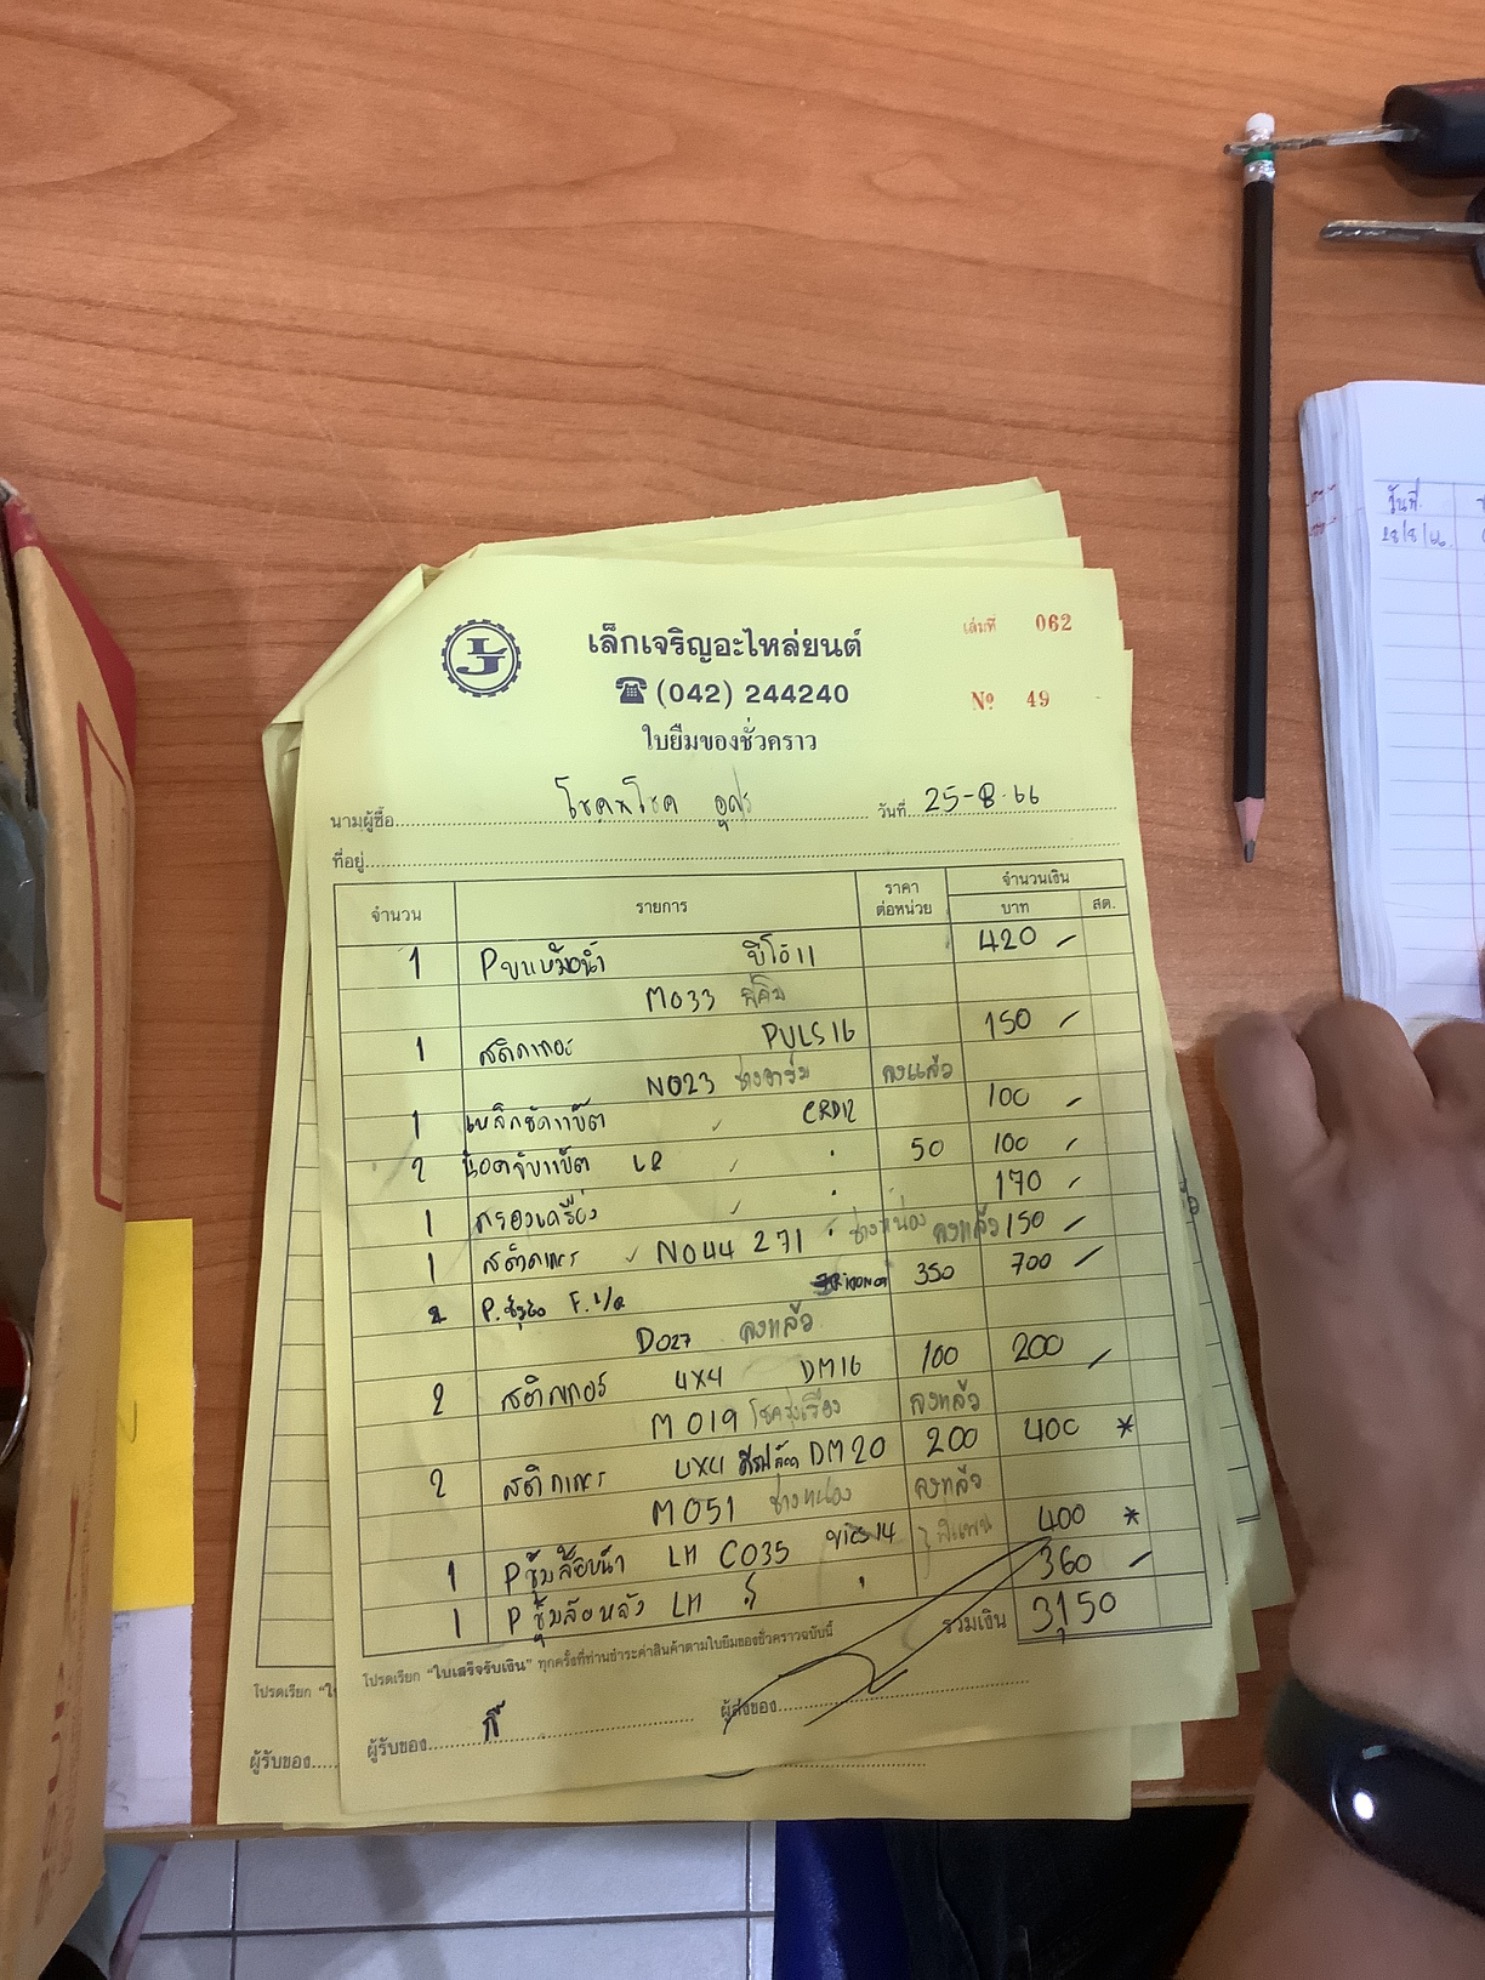 LJ
เล็กเจริญอะไหล่ยนต์
เล่มที่ 062
☎ (042) 244240
Nº 49
ใบยืมของชั่วคราว
นามผู้ซื้อ โชคพโชค อุดร วันที่ 25-8-66
ที่อยู่
จำนวน รายการ ราคาต่อหน่วย จำนวนเงิน
บาท สต.
1 P ขาหม้อน้ำ วีโก้11 420 -
M033 พี่คิม
1 สติกเกอร์ PULS16 150 -
N023 ช่างอาร์ม ลงแล้ว
1 เหล็กรัดแบ็ต CRD12 100 -
2 น็อตจับแบ็ต LR 50 100
1 กรองเครื่อง 170
1 สติกเกอร์ N044 271 ช่างหน่อง ลงแล้ว 150 -
2 P. F. L/R 350 700 -
D027 ลงแล้ว
2 สติกเกอร์ 4X4 DM16 100 200 -
M019 โชครุ่งเรือง ลงแล้ว
2 สติกเกอร์ 4X4 DM20 200 400 *
M051 ช่างหน่อง ลงแล้ว
1 P ซุ้มล้อหน้า LH C035 วีออส14 400 *
1 P ซุ้มล้อหลัง LH 360 -
รวมเงิน 3,150
โปรดเรียก "ใบเสร็จรับเงิน" ทุกครั้งที่ท่านชำระค่าสินค้าตามใบยืมของชั่วคราวฉบับนี้
ผู้รับของ กี้ ผู้ส่งของ
โปรดเรียก
ผู้รับของ
วันที่
28/8/66